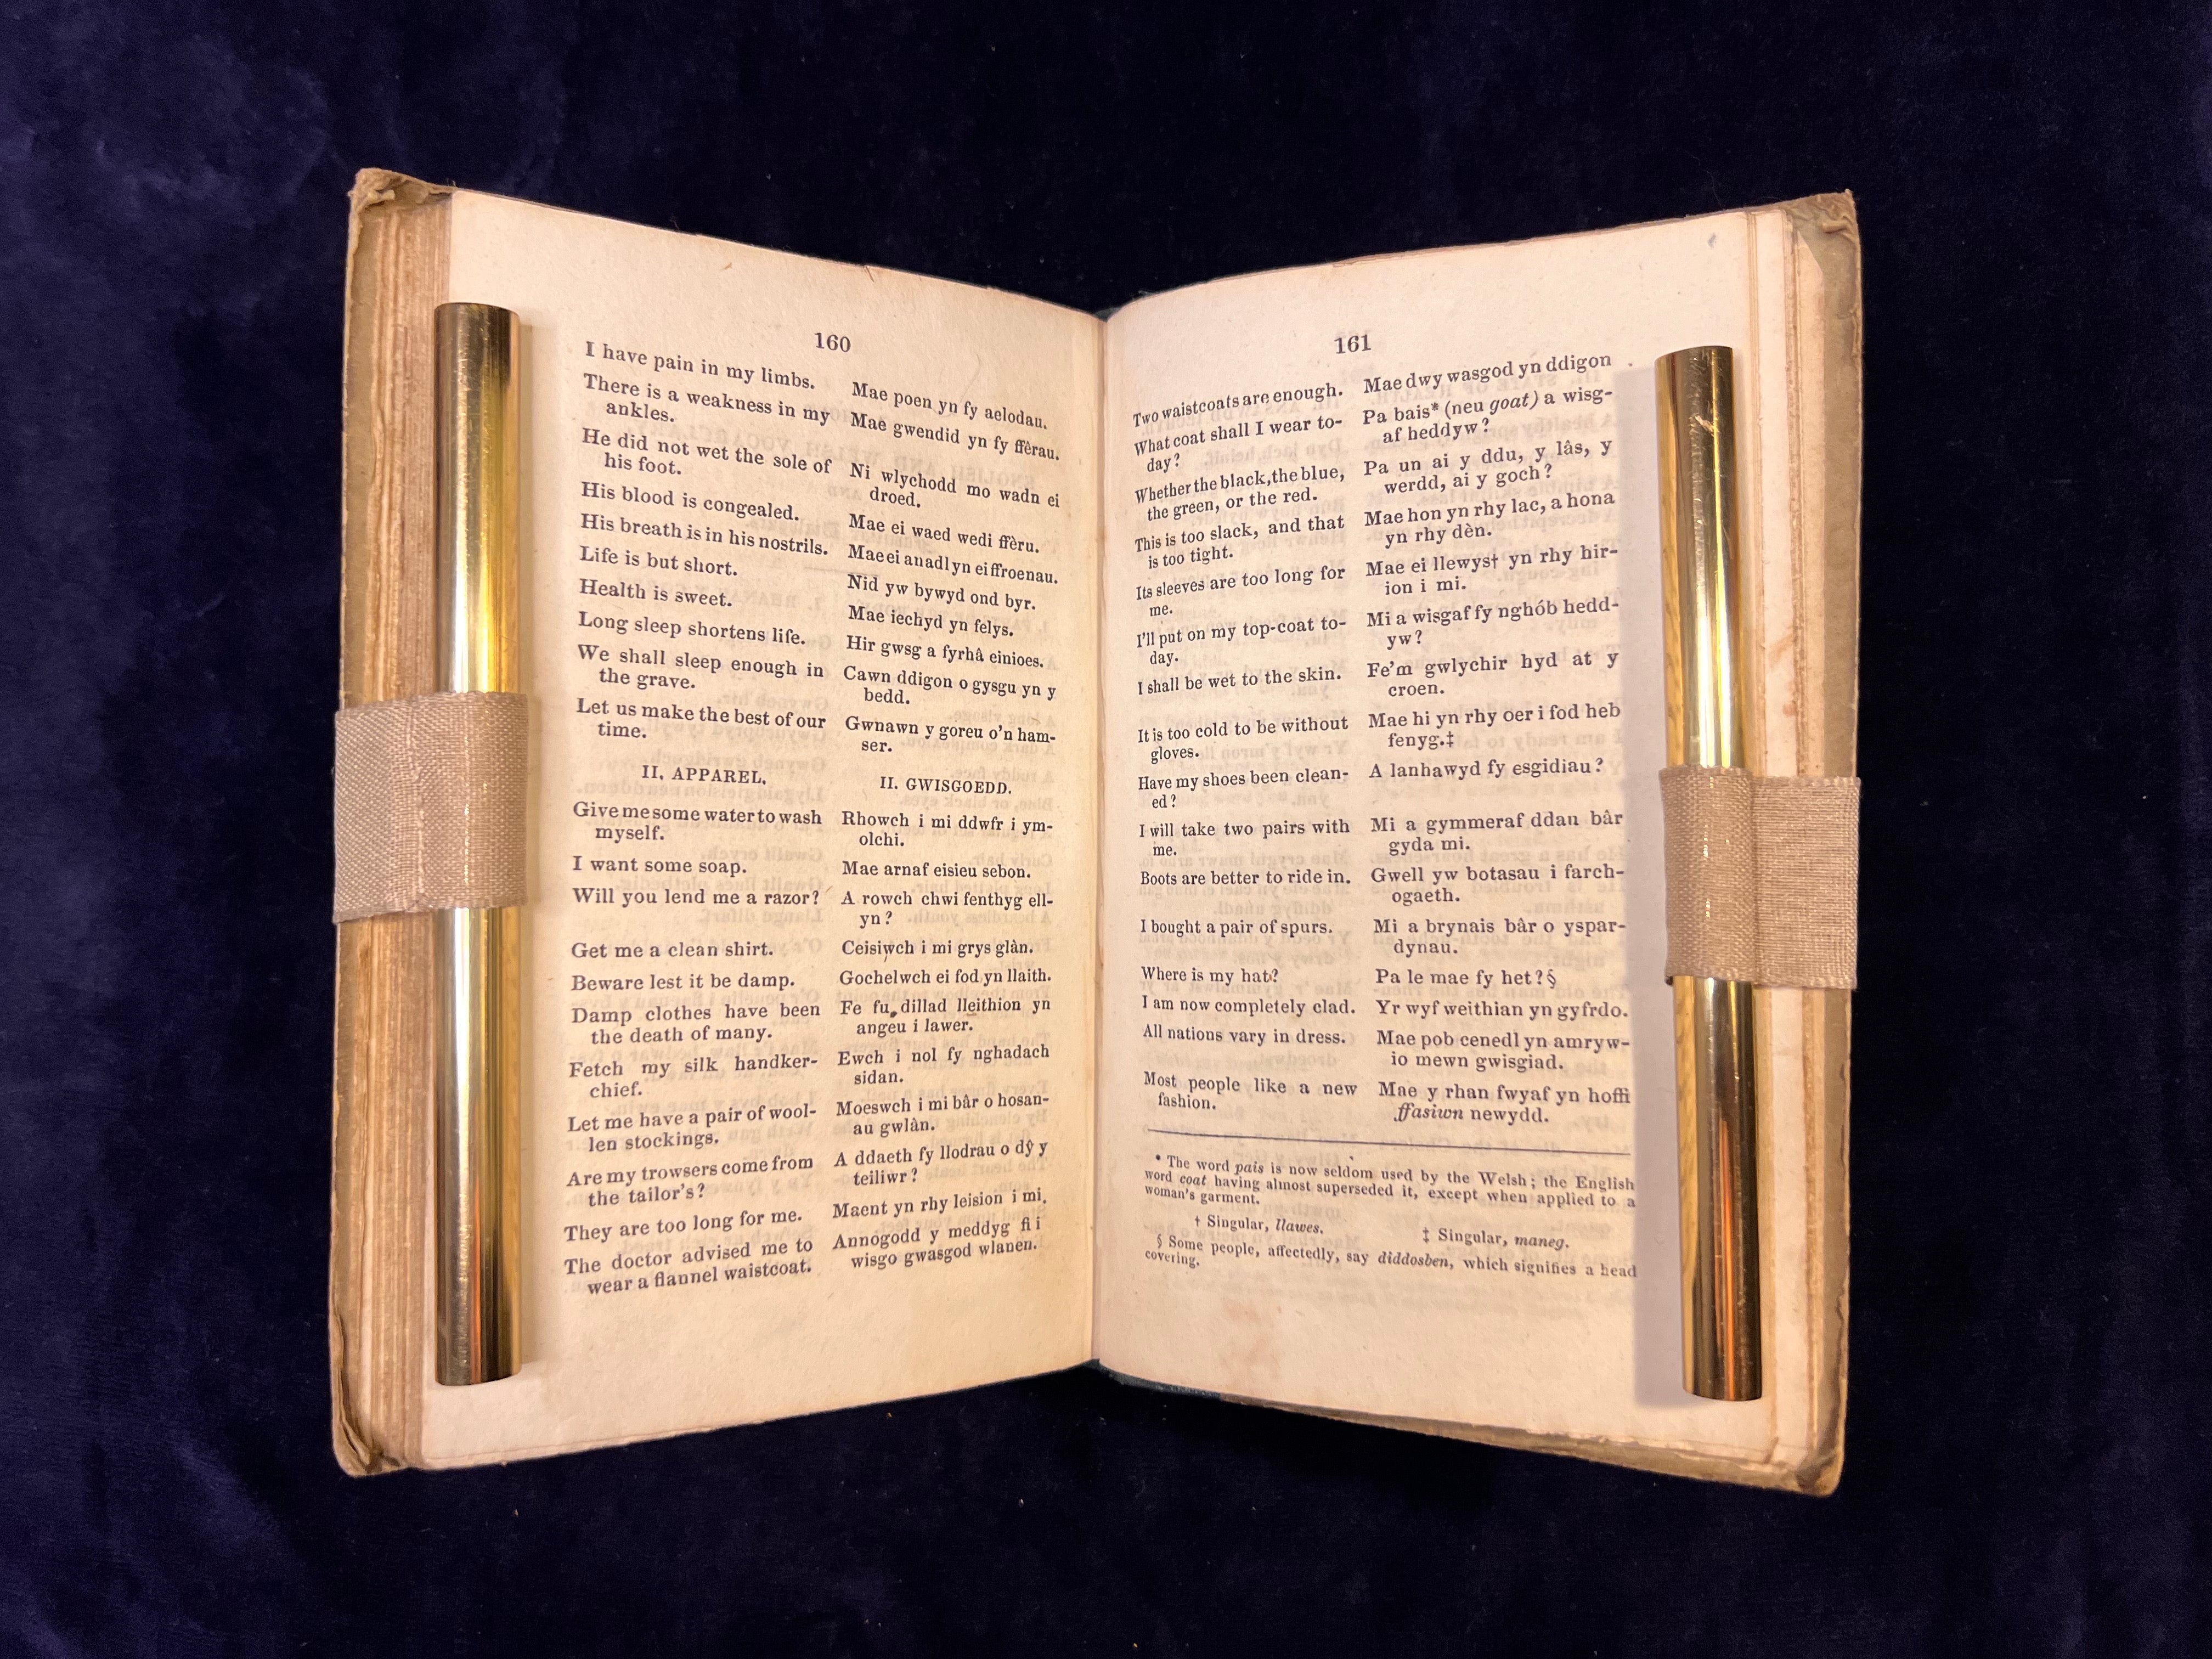 160
I have pain in my limbs.
There is a weakness in my
ankles.
He did not wet the sole of
his foot.
His blood is congealed.
His breath is in his nostrils.
Life is but short.
Health is sweet.
Long sleep shortens life.
We shall sleep enough in
the grave.
Let us make the best of our
time.
II. APPAREL.
Give me some water to wash
myself.
I want some soap.
Will you lend me a razor?
Get me a clean shirt.
Beware lest it be damp.
Damp clothes have been
the death of many.
Fetch my silk handker-
chief.
Let me have a pair of wool-
len stockings.
Are my trowsers come from
the tailor's?
They are too long for me.
The doctor advised me to
wear a flannel waistcoat.
Mae poen yn fy aelodau.
Mae gwendid yn fy ffêrau.
Ni wlychodd mo wadn ei
droed.
Mae ei waed wedi ffèru.
Mae ei anadl yn ei ffroenau.
Nid yw bywyd ond byr.
Mae iechyd yn felys.
Hir gwsg a fyrhâ einioes.
Cawn ddigon o gysgu yn y
bedd.
Gwnawn y goreu o'n ham-
ser.
II. GWISGOEDD.
Rhowch i mi ddwfr i ym-
olchi.
Mae arnaf eisieu sebon.
A rowch chwi fenthyg ell-
yn?
Ceisiwch i mi grys glàn.
Gochelwch ei fod yn llaith.
Fe fu dillad lleithion yn
angeu i lawer.
Ewch i nol fy nghadach
sidan.
Moeswch i mi bâr o hosan-
au gwlàn.
A ddaeth fy llodrau o dŷ y
teiliwr?
Maent yn rhy leision i mi.
Annogodd y meddyg fi i
wisgo gwasgod wlanen.
161
Two waistcoats are enough.
What coat shall I wear to-
day?
Whether the black, the blue,
the green, or the red.
This is too slack, and that
is too tight.
Its sleeves are too long for
me.
I'll put on my top-coat to-
day.
I shall be wet to the skin.
It is too cold to be without
gloves.
Have my shoes been clean-
ed?
I will take two pairs with
me.
Boots are better to ride in.
I bought a pair of spurs.
Where is my hat?
I am now completely clad.
All nations vary in dress.
Most people like a new
fashion.
Mae dwy wasgod yn ddigon
Pa bais* (neu goat) a wisg-
af heddyw?
Pa un ai y ddu, y lâs, y
werdd, ai y goch?
Mae hon yn rhy lac, a hona
yn rhy dèn.
Mae ei llewys† yn rhy hir-
ion i mi.
Mi a wisgaf fy nghób hedd-
yw?
Fe'm gwlychir hyd at y
croen.
Mae hi yn rhy oer i fod heb
fenyg.‡
A lanhawyd fy esgidiau?
Mi a gymmeraf ddau bâr
gyda mi.
Gwell yw botasau i farch-
ogaeth.
Mi a brynais bâr o yspar-
dynau.
Pa le mae fy het?§
Yr wyf weithian yn gyfrdo.
Mae pob cenedl yn amryw-
io mewn gwisgiad.
Mae y rhan fwyaf yn hoffi
ffasiwn newydd.
* The word pais is now seldom used by the Welsh; the English
word coat having almost superseded it, except when applied to a
woman's garment.
† Singular, llawes. ‡ Singular, maneg.
§ Some people, affectedly, say diddosben, which signifies a head
covering.